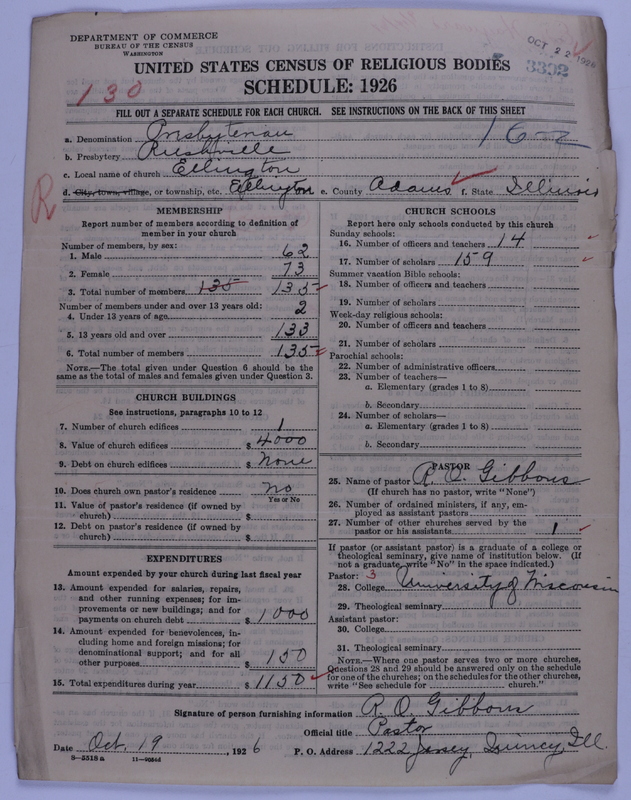 DEPARTMENT OF COMMERCE
BUREAU OF THE CENSUS
WASHINGTON
OCT 22 1926
3392
UNITED STATES CENSUS OF RELIGIOUS BODIES
SCHEDULE: 1926
130
FILL OUT A SEPARATE SCHEDULE FOR EACH CHURCH. SEE INSTRUCTIONS ON THE BACK OF THIS SHEET
16-2
a. Denomination Presbyterian
b. Presbytery Rushville
c. Local name of church Ellington
d. City, town, village, or township, etc. Ellington e. County Adams f. State Illinois
R
MEMBERSHIP
Report number of members according to definition of
member in your church
Number of members, by sex:
1. Male 62
2. Female 73
3. Total number of members 135 135
Number of members under and over 13 years old:
4. Under 13 years of age 2
5. 13 years old and over 133
6. Total number of members 135
NOTE.—The total given under Question 6 should be the
same as the total of males and females given under Question 3.
CHURCH BUILDINGS
See instructions, paragraphs 10 to 12
7. Number of church edifices 1
8. Value of church edifices $ 4000
9. Debt on church edifices $ None
10. Does church own pastor's residence No
Yes or No
11. Value of pastor's residence (if owned by
church) $
12. Debt on pastor's residence (if owned by
church) $
EXPENDITURES
Amount expended by your church during last fiscal year
13. Amount expended for salaries, repairs,
and other running expenses; for im-
provements or new buildings; and for
payments on church debt $ 1000
14. Amount expended for benevolences, in-
cluding home and foreign missions; for
denominational support; and for all
other purposes $ 150
15. Total expenditures during year $ 1150
CHURCH SCHOOLS
Report here only schools conducted by this church
Sunday schools:
16. Number of officers and teachers 14
17. Number of scholars 159
Summer vacation Bible schools:
18. Number of officers and teachers
19. Number of scholars
Week-day religious schools:
20. Number of officers and teachers
21. Number of scholars
Parochial schools:
22. Number of administrative officers
23. Number of teachers—
a. Elementary (grades 1 to 8)
b. Secondary
24. Number of scholars—
a. Elementary (grades 1 to 8)
b. Secondary
PASTOR
25. Name of pastor R. O. Gibbons
(If church has no pastor, write "None")
26. Number of ordained ministers, if any, em-
ployed as assistant pastors
27. Number of other churches served by the
pastor or his assistants 1
If pastor (or assistant pastor) is a graduate of a college or
theological seminary, give name of institution below. (If
not a graduate, write "No" in the space indicated.)
Pastor: 3
28. College University of Wisconsin
29. Theological seminary
Assistant pastor:
30. College
31. Theological seminary
NOTE.—Where one pastor serves two or more churches,
Questions 28 and 29 should be answered only on the schedule
for one of the churches; on the schedules for the other churches,
write "See schedule for church."
Signature of person furnishing information R. O. Gibbons
Official title Pastor
Date Oct. 19, 1926 P. O. Address 1222 Jersey, Quincy, Ill.
8-5518a 11-90846